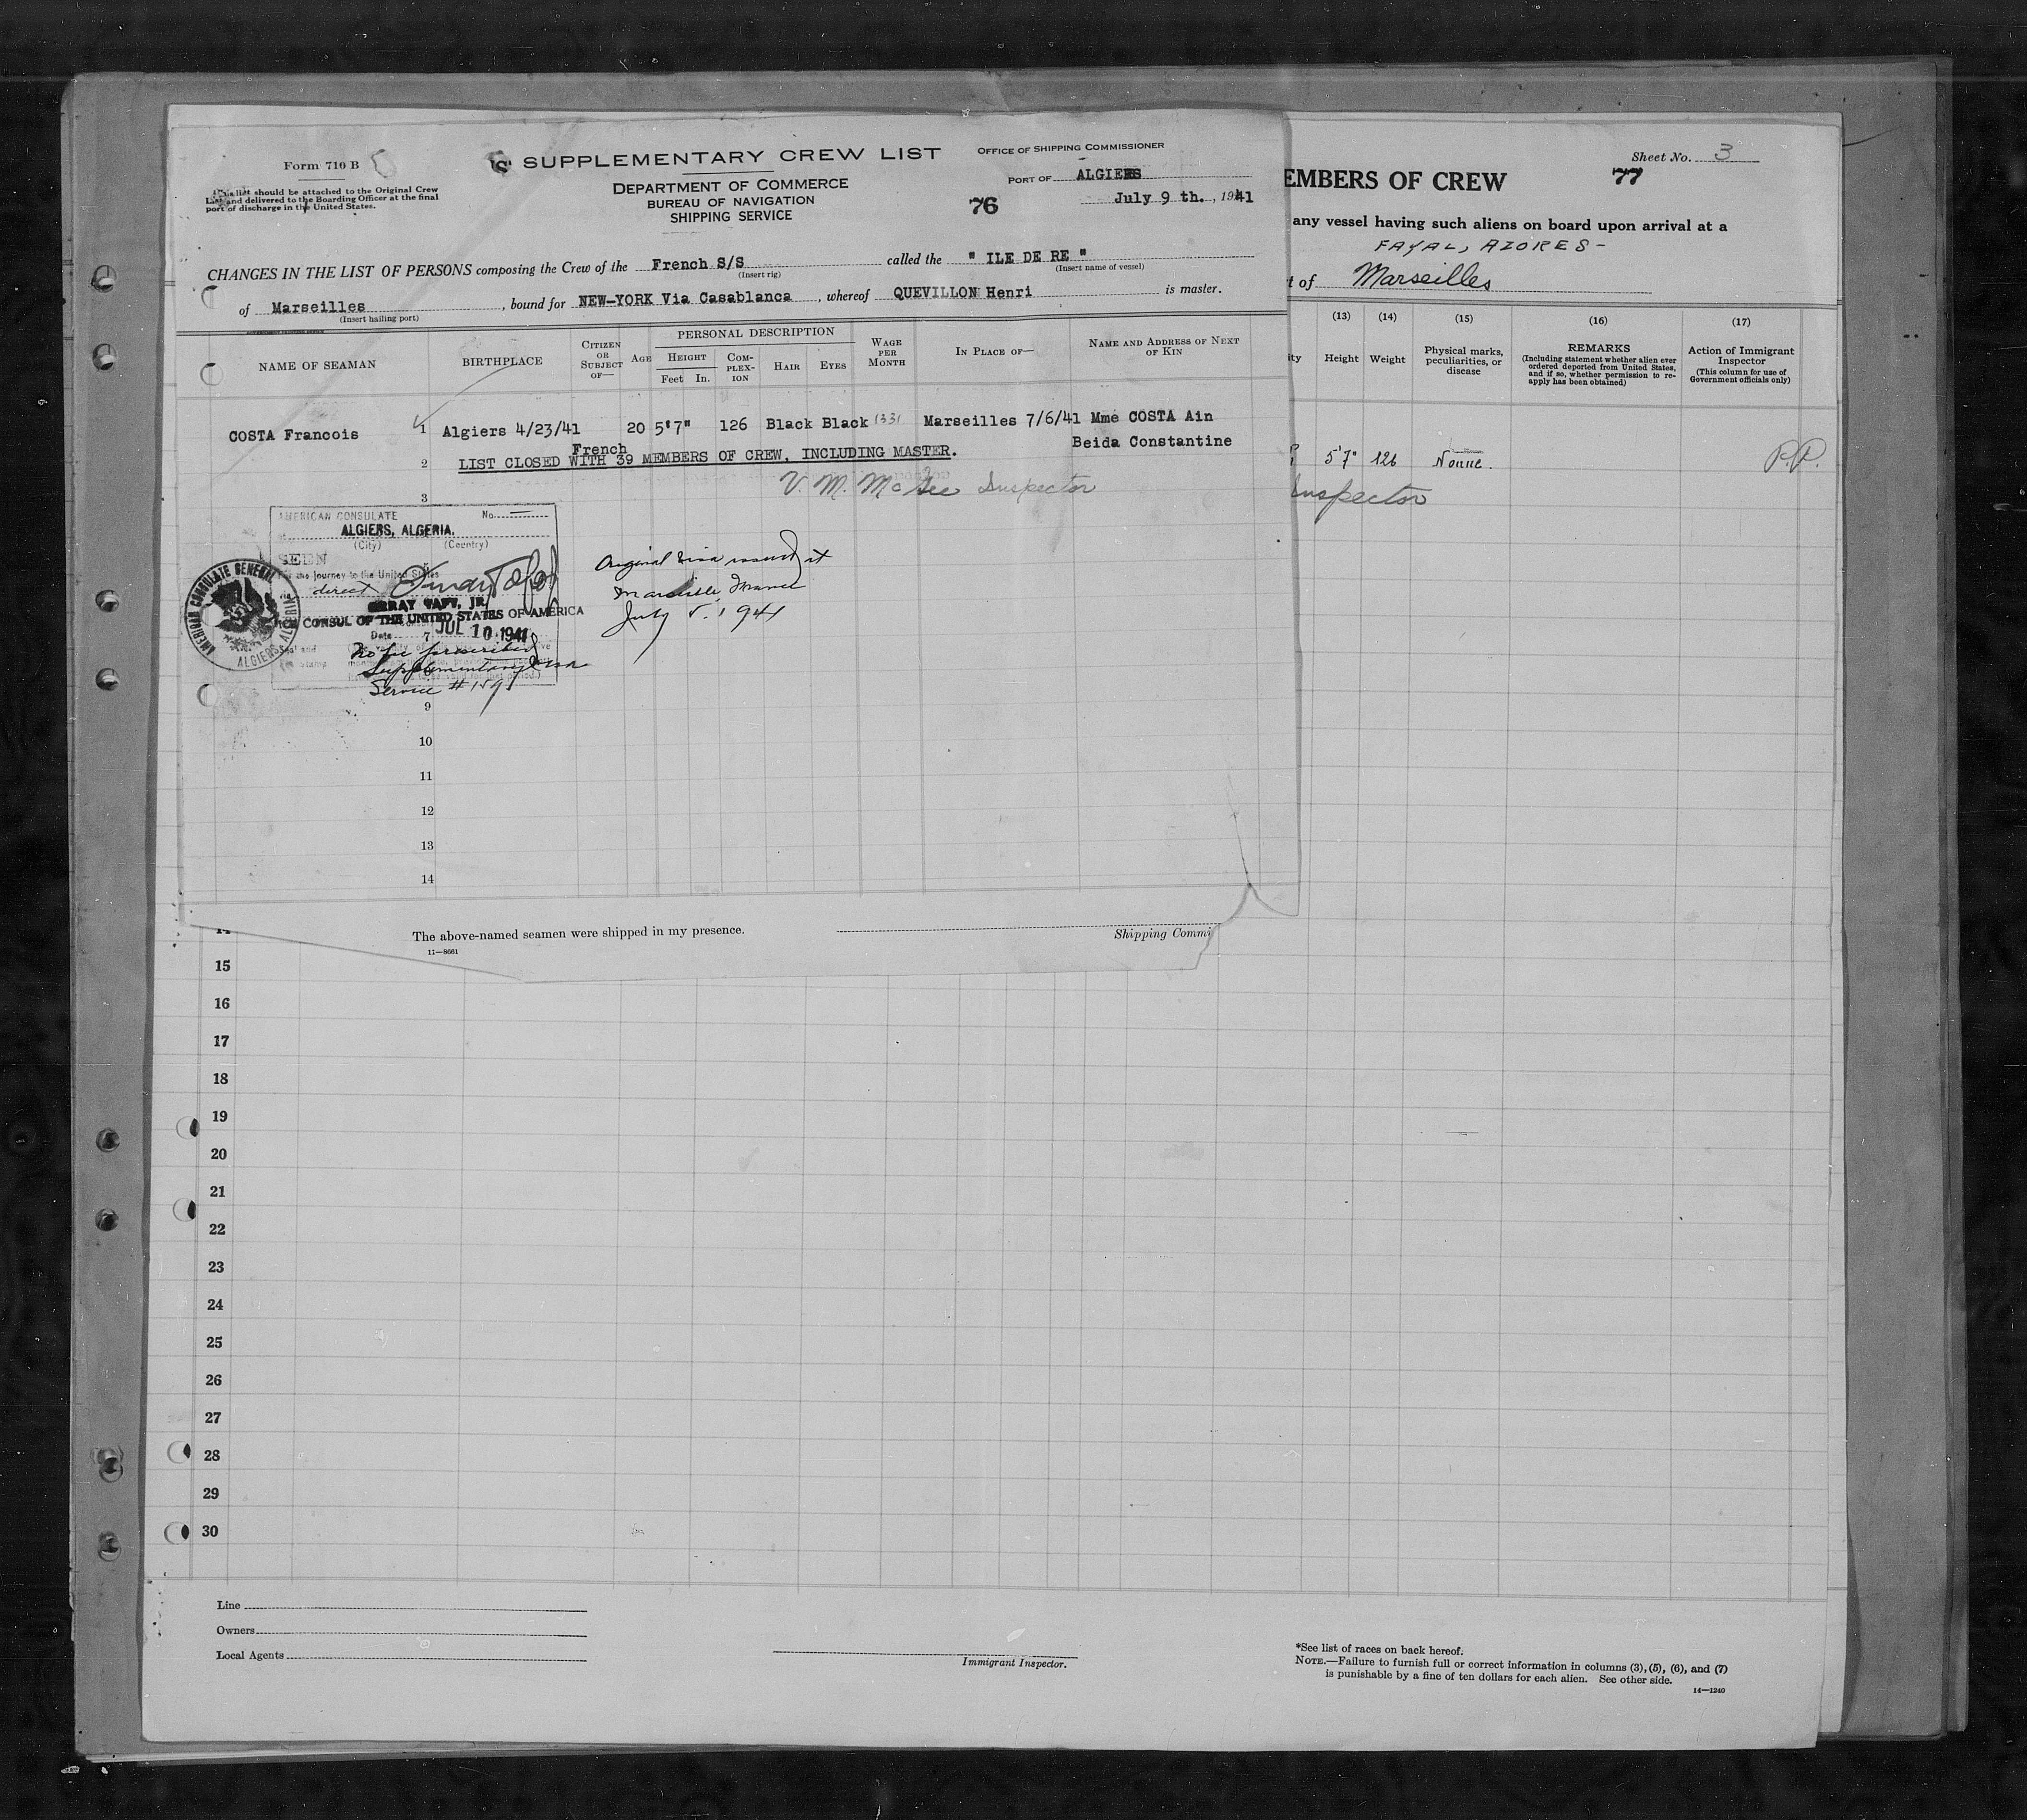 Form 710 B
This list should be attached to the Original Crew
List and delivered to the Boarding Officer at the final
port of discharge in the United States.
SUPPLEMENTARY CREW LIST
DEPARTMENT OF COMMERCE
BUREAU OF NAVIGATION
SHIPPING SERVICE
76
OFFICE OF SHIPPING COMMISSIONER
PORT OF ALGIERS
July 9 th., 1941
CHANGES IN THE LIST OF PERSONS composing the Crew of the French S/S called the " ILE DE RE "
(Insert rig) (Insert name of vessel)
of Marseilles, bound for NEW-YORK Via Casablanca, whereof QUEVILLON Henri is master.
(Insert hailing port)
NAME OF SEAMAN
BIRTHPLACE
CITIZEN
OR
SUBJECT
OF—
AGE
PERSONAL DESCRIPTION
HEIGHT
Feet In.
COM-
PLEX-
ION
HAIR
EYES
WAGE
PER
MONTH
IN PLACE OF—
NAME AND ADDRESS OF NEXT
OF KIN
COSTA Francois 1 Algiers 4/23/41 20 5'7" 126 Black Black 1331 Marseilles 7/6/41 Mme COSTA Ain
French Beida Constantine
2 LIST CLOSED WITH 39 MEMBERS OF CREW, INCLUDING MASTER.
V. M. McGee Inspector
3
AMERICAN CONSULATE No.
ALGIERS, ALGERIA.
(City) (Country)
SEEN
For the journey to the United States
direct
TAFT, JR.
CONSUL OF THE UNITED STATES OF AMERICA
Date JUL 10 1941
No fee prescribed
Supplementary visa
Service # 159
AMERICAN CONSULATE GENERAL
ALGIERS, ALGERIA
Original visa issued at
Marseille, France
July 5, 1941
9
10
11
12
13
14
The above-named seamen were shipped in my presence.
11—8661
Shipping Commi
EMBERS OF CREW
Sheet No. 3
77
any vessel having such aliens on board upon arrival at a
FAYAL, AZORES -
t of Marseilles
ity
(13)
Height
(14)
Weight
(15)
Physical marks,
peculiarities, or
disease
(16)
REMARKS
(Including statement whether alien ever
ordered deported from United States,
and if so, whether permission to re-
apply has been obtained)
(17)
Action of Immigrant
Inspector
(This column for use of
Government officials only)
5'7" 126 None. P.P.
Inspector
14
15
16
17
18
19
20
21
22
23
24
25
26
27
28
29
30
Line
Owners
Local Agents
Immigrant Inspector.
*See list of races on back hereof.
NOTE.—Failure to furnish full or correct information in columns (3), (5), (6), and (7)
is punishable by a fine of ten dollars for each alien. See other side.
14—1240